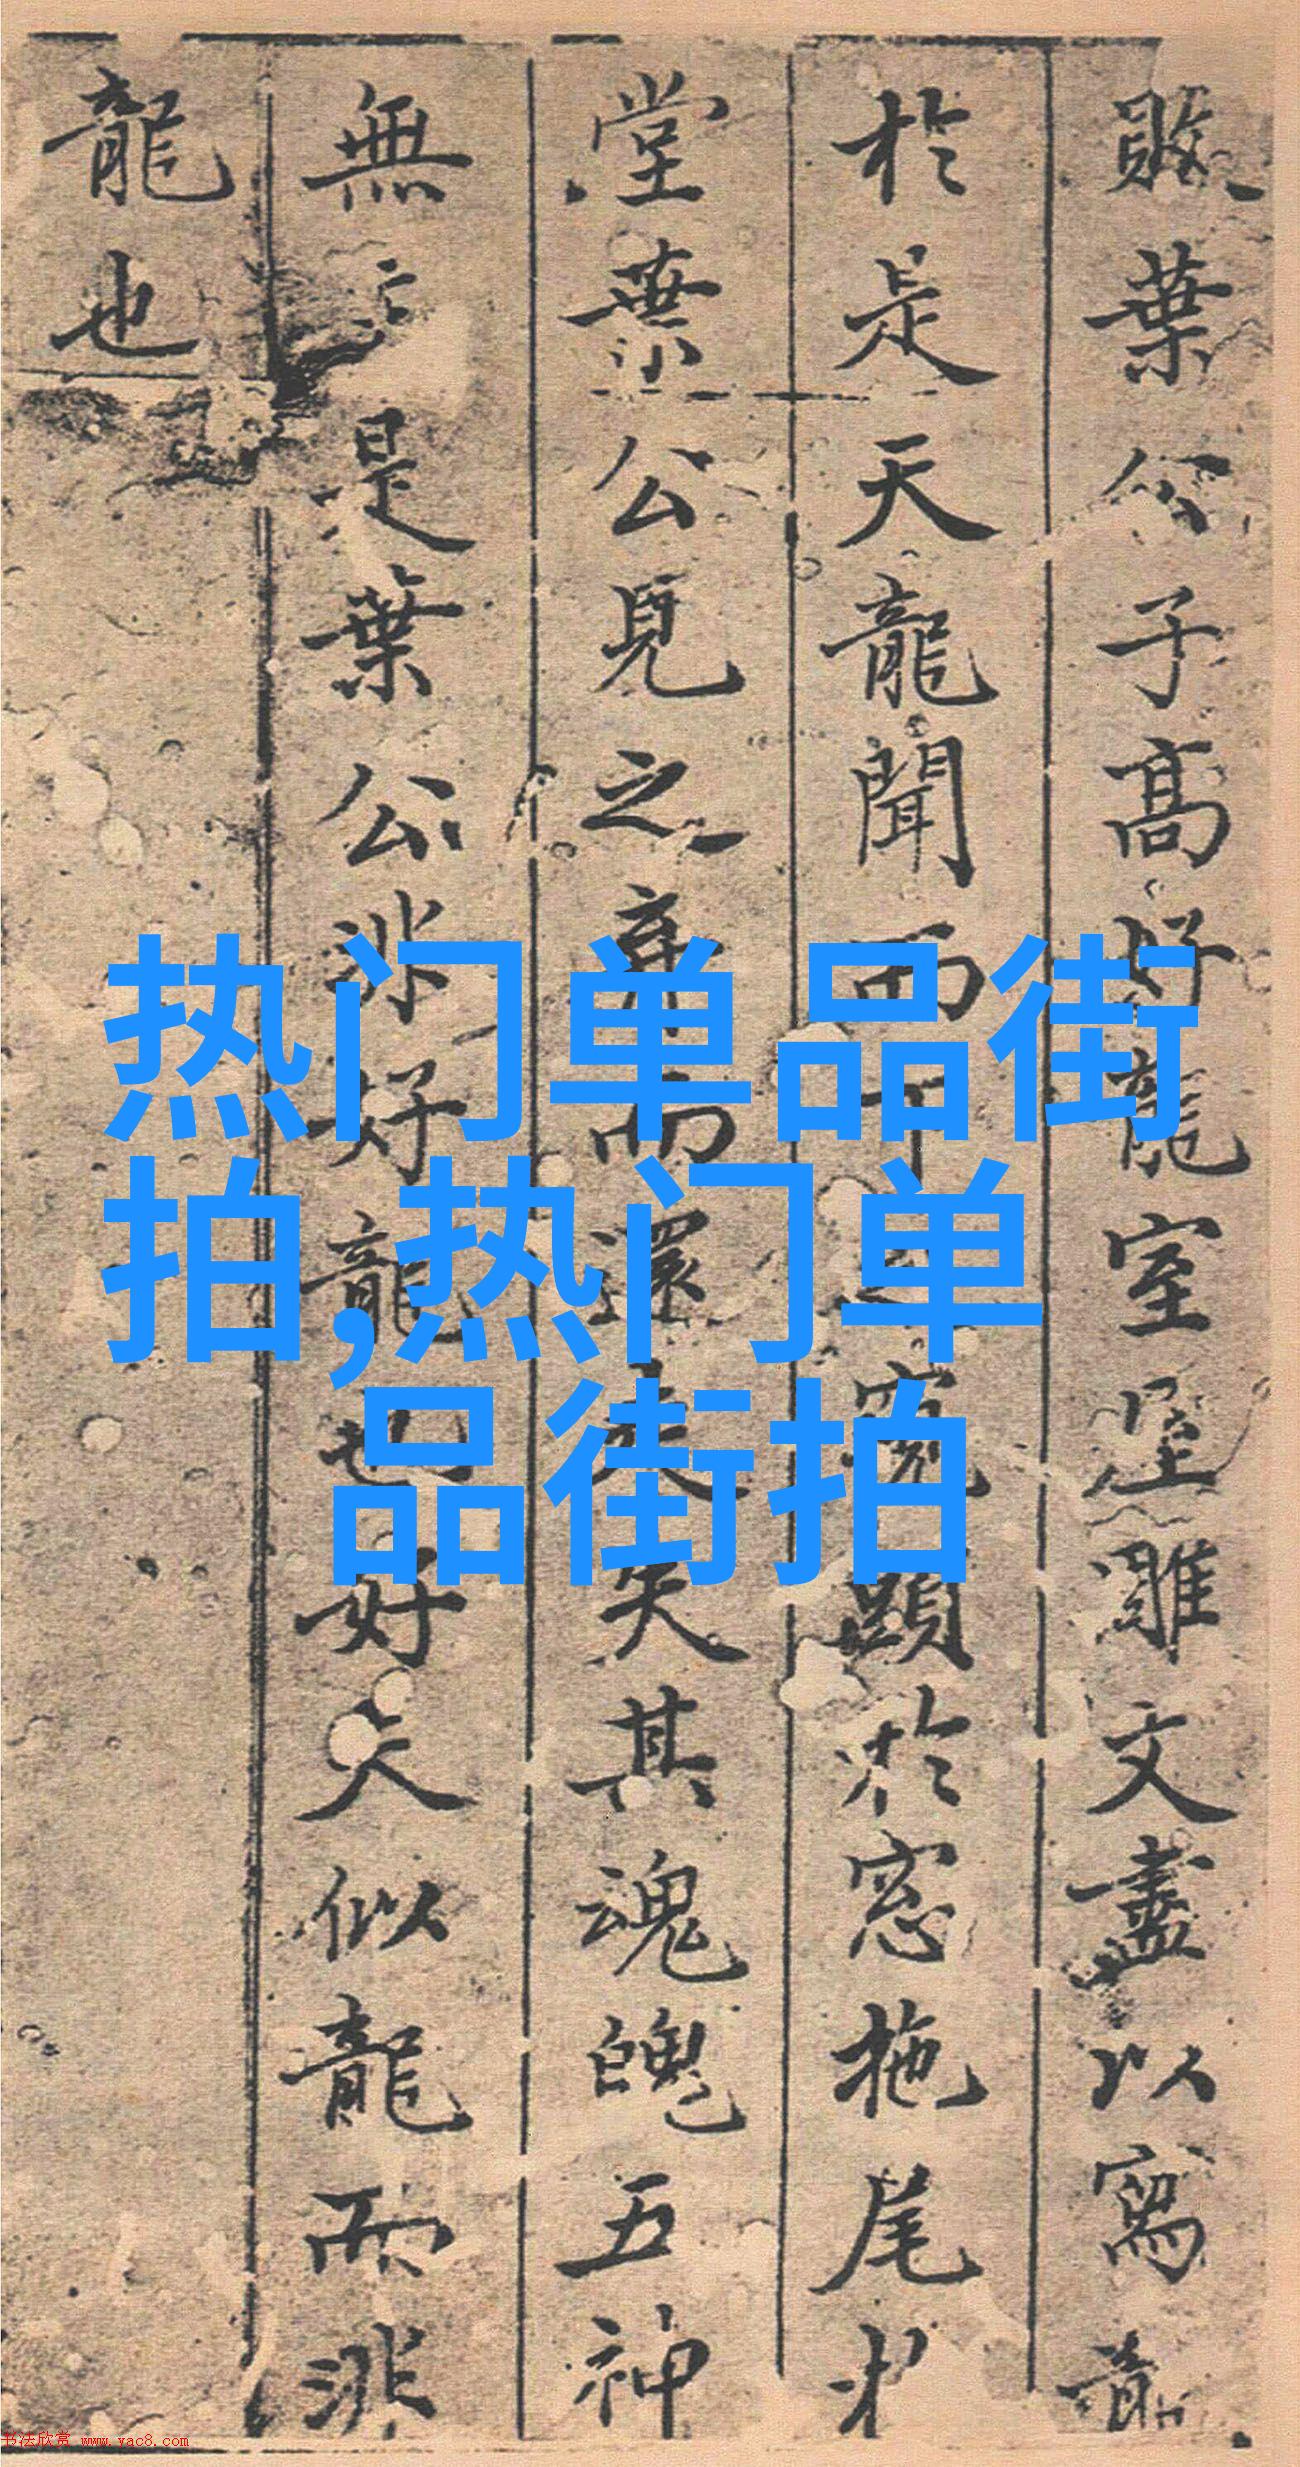 葉公子高好龍室屋雕文盡以寫龍
於是天龍聞而下窺頭於窓拖尾於
堂葉公見之棄而還走失其魂魄五神
無主是葉公非好龍也好夫似龍而非
龍也
热门单品街
拍,热门单
品街拍
书法欣赏 www.yac8.com